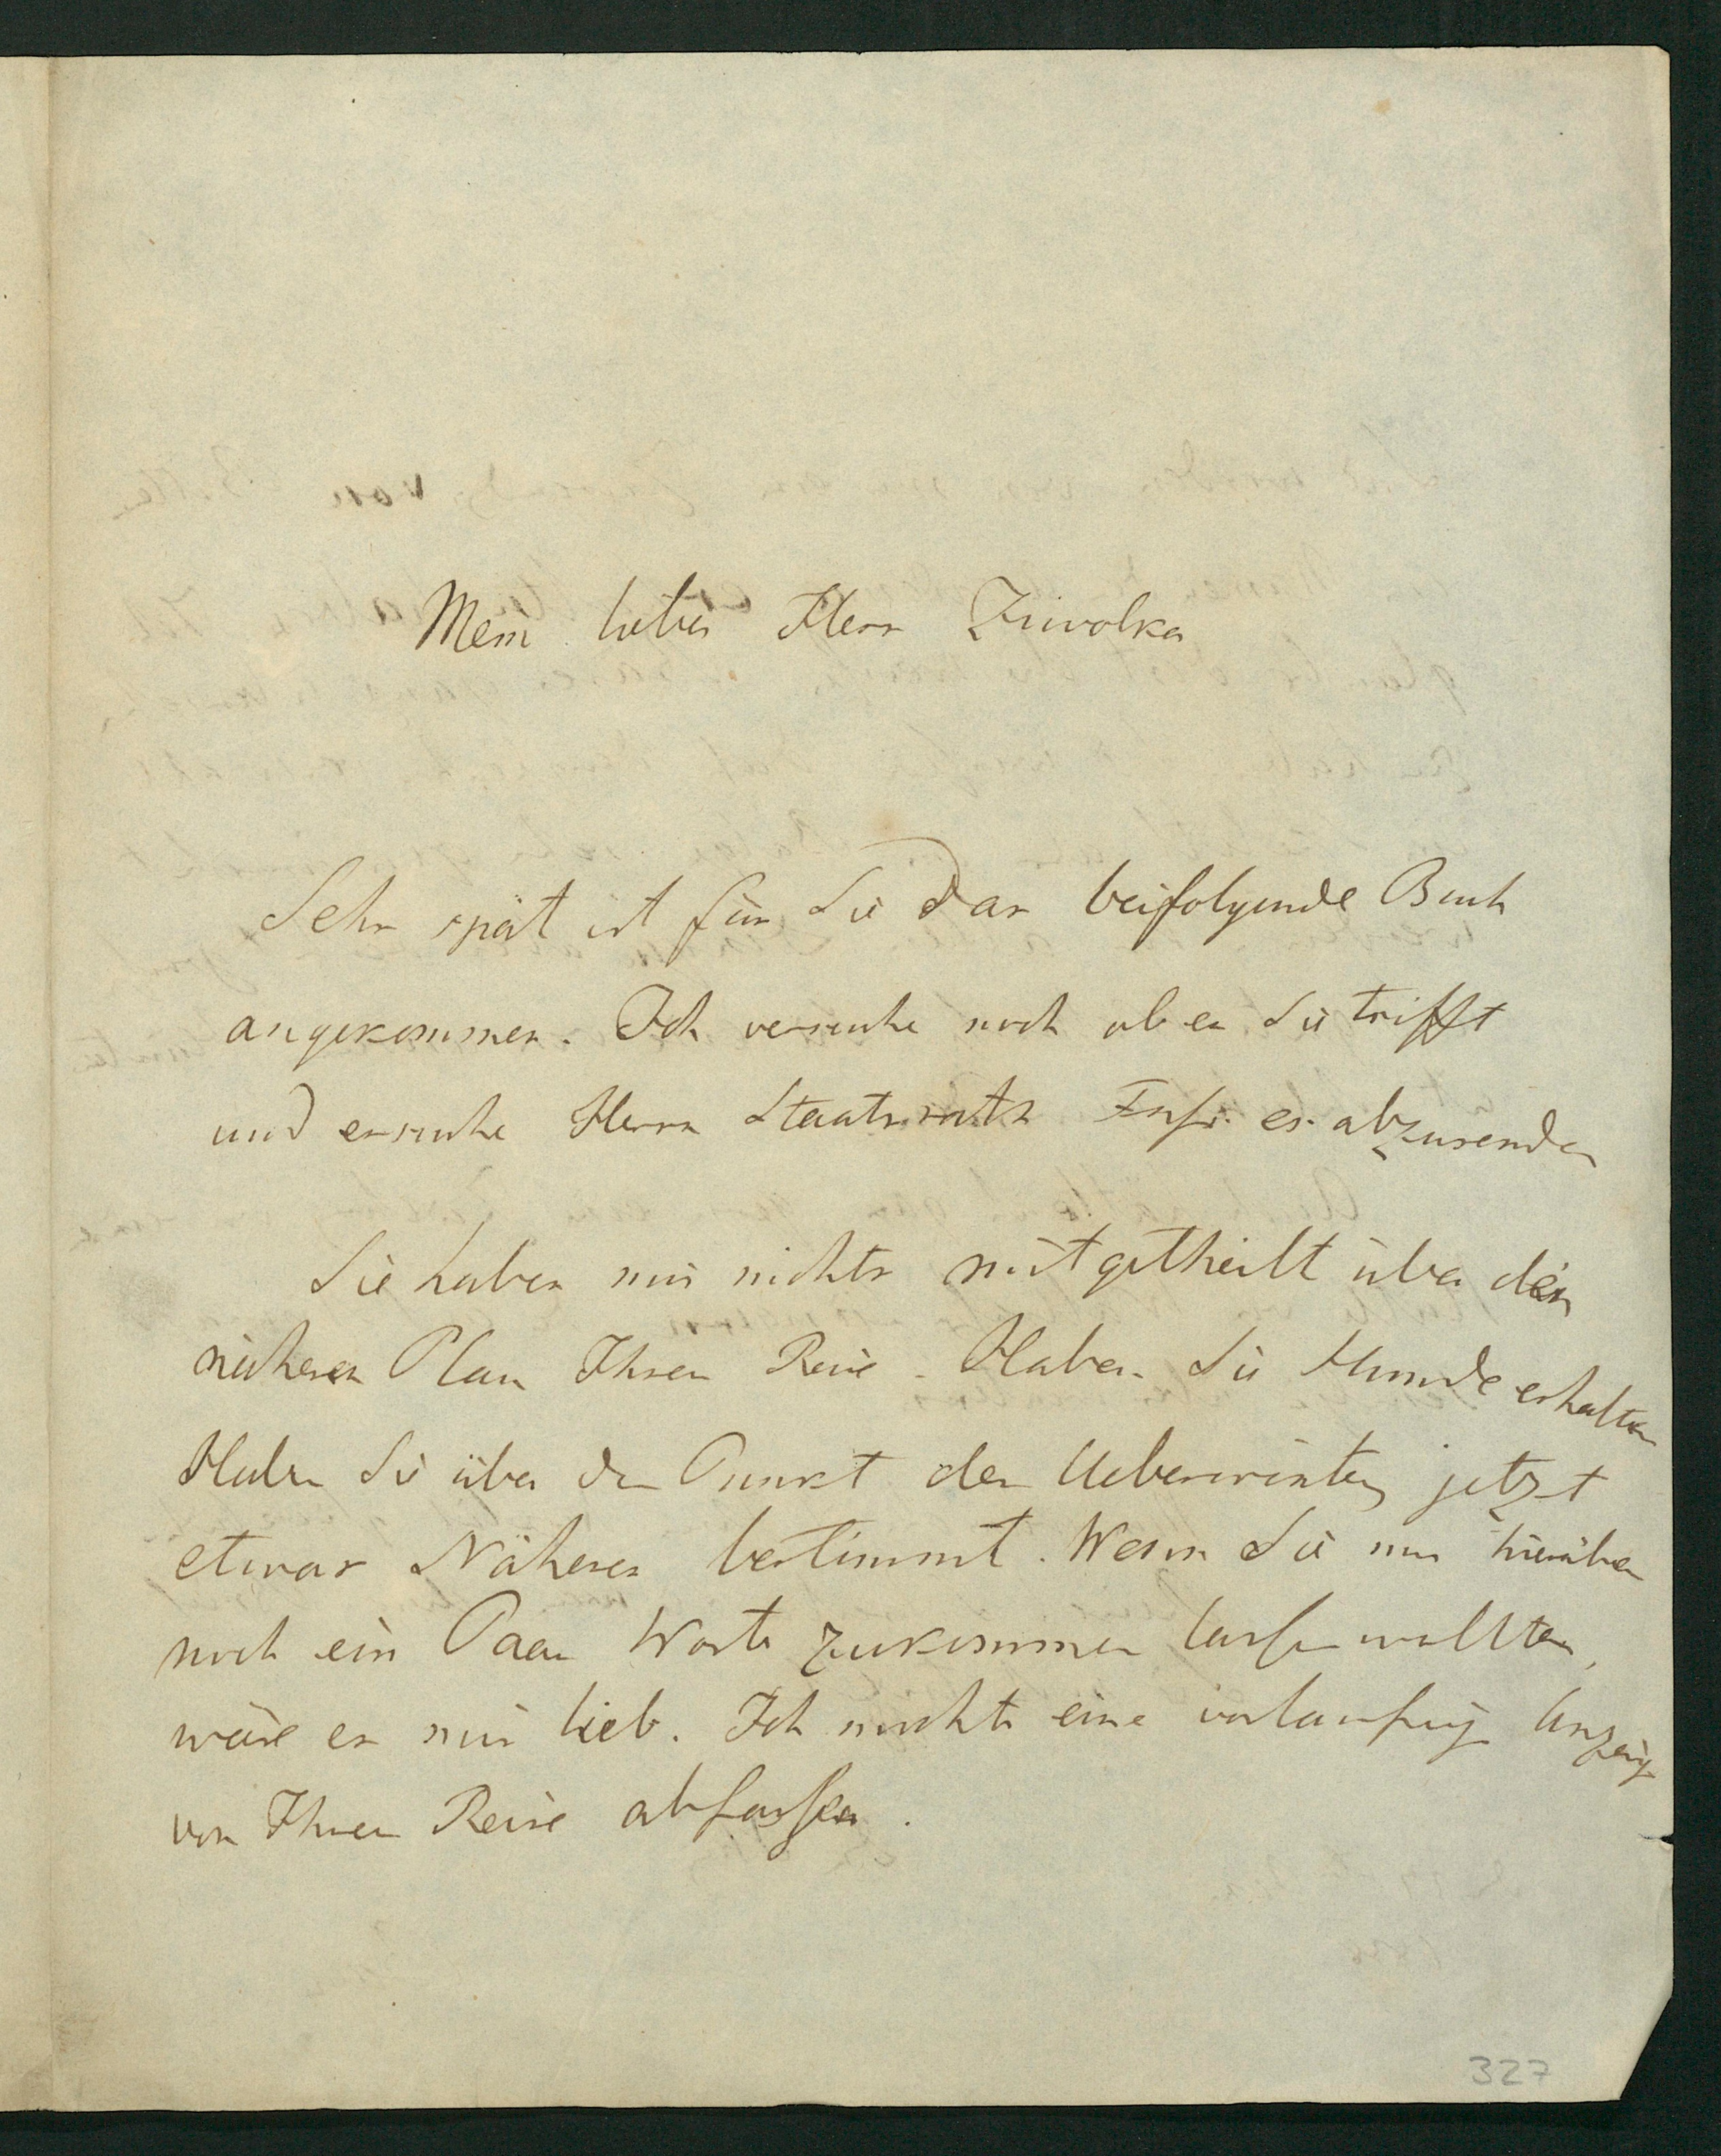 Mein lieber Herr Ziwolka
Sehr spät ist für Sie das beifolgende Buch
angekommen. Ich versuche noch ob es Sie trifft
und ersuche Herrn Staatsrath es abzusenden
Sie haben mir nichts mitgetheilt über den
näheren Plan Ihrer Reise. Haben Sie Hunde erhalten
Haben Sie über den Punkt der Ueberwinterg jetzt
etwas Näheres bestimmt. Wenn Sie mir hierüber
noch ein Paar Worte zukommen lassen wollten,
wäre es mir lieb. Ich möchte eine vorlaufige Anzeige
von Ihrer Reise abfassen.
327